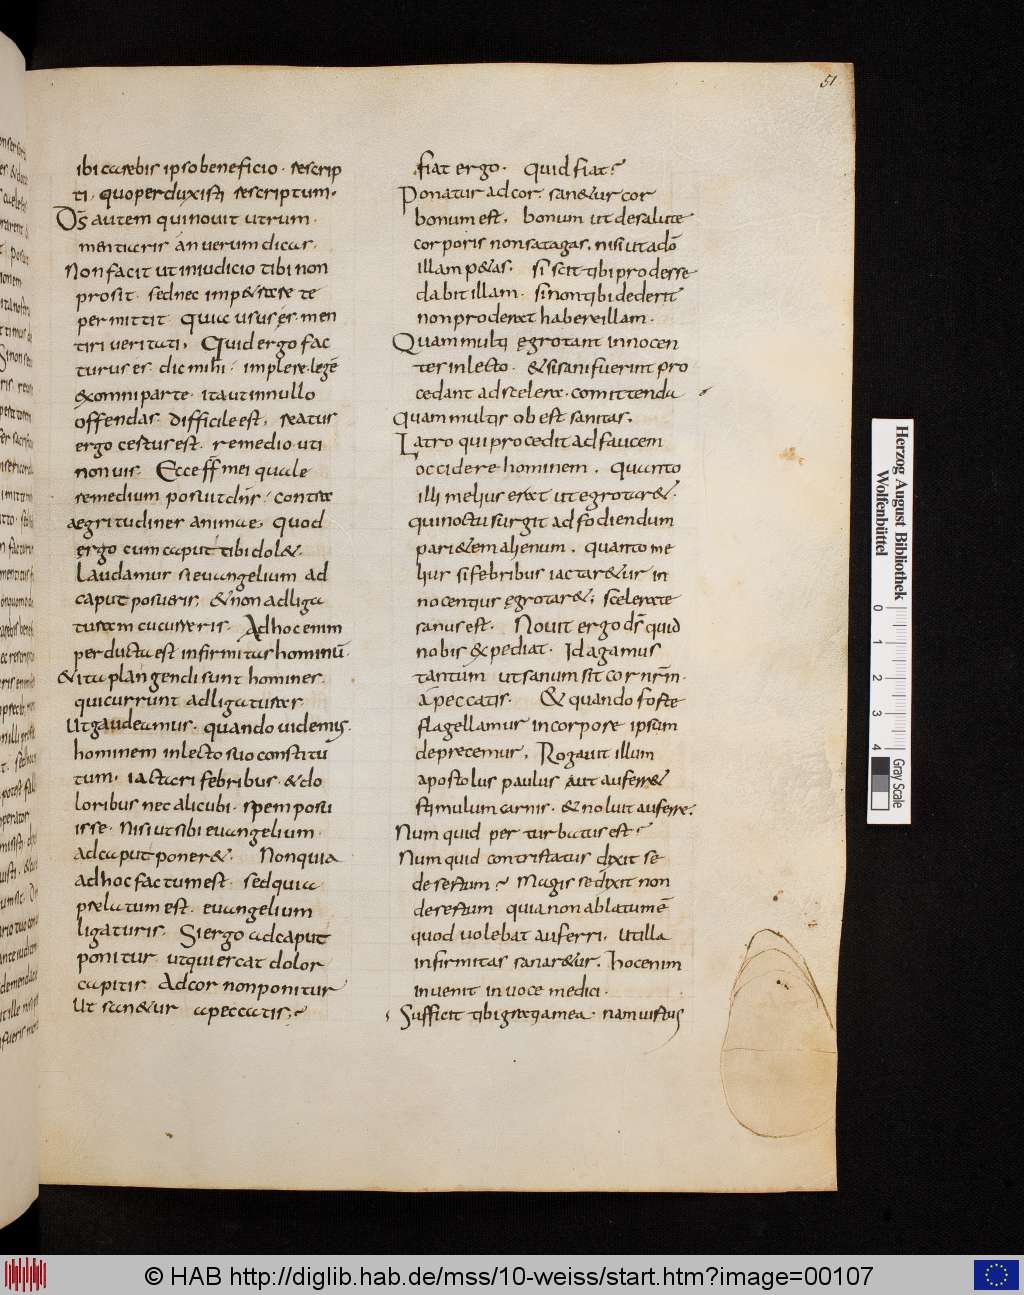 51
ibi carebis ipso beneficio · rescrip
ti · quo perduxisti rescriptum ·
Ds̄ autem qui nouit utrum ·
mentiaris an uerum dicas ·
Non facit ut in iudicio tibi non
prosit · sed nec impetrare te
permittit · Quia usus es · men
tiri ueritati , Quid ergo fac
turus es · dic mihi ; implere legē
& omni parte · ita ut in nullo
offendas · difficile est , reatus
ergo certus est · remedio uti
non uis · Ecce ff̄ mei quale
remedium posuit dn̄s ; contra
aegritudines animae , Quod
ergo cum caput tibi dol& ·
Laudamus si euangelium ad
caput posueris , & non ad liga
turam cucurreris · Ad hoc enim
perducta est infirmitas hominū ·
& ita plangendi sunt homines ·
qui currunt ad ligaturas ·
Ut gaudeamus · quando uidemus ·
hominem in lecto suo constitu
tum , iactari febribus · & do
loribus nec alicubi · spem posu
isse · nisi ut sibi euangelium ·
ad caput poner& · Non quia
ad hoc factum est · sed quia
prelatum est · euangelium
ligaturis · Si ergo ad caput
ponitur ut quiescat dolor
capitis Ad cor non ponitur
Ut san&ur a peccatis ;
fiat ergo · Quid fiat ?
Ponatur ad cor · san&ur cor
bonum est , bonum ut de salute
corporis non satagas , nisi ut a dō
illam p&as · si scit tibi prodesse
dabit illam · si non tibi dederit
non proderat habere illam ·
Quam multi ęgrotant innocen
ter in lecto · & si sani fuerint pro
cedant ad scelera · comittenda
Quam multis obest sanitas ,
Latro qui procedit ad faucem
occidere hominem , Quanto
illi melius erat ut egrotar& ·
qui noctu surgit ad fodiendum
pari&em alienum , quanto me
lius si febribus iactar&ur in
nocentius ęgrotar& ; scelerate
sanus est · Nouit ergo ds̄ quid
nobis expediat · Id agamus
tantum ut sanum sit cor nr̄m ·
a peccatis · & quando forte
flagellamur in corpore ipsum
deprecemur , Rogauit illum
apostolus paulus aut aufer&
stimulum carnis · & noluit auferre ,
Numquid perturbatus est ?
Numquid contristatus dixit se
desertum ? Magis se dixit non
desertum quia non ablatum ē
quod uolebat auferri , ut illa
infirmitas sanar&ur , hoc enim
inuenit in uoce medici ·
Sufficit tibi gratia mea · nam uirtus
Herzog August Bibliothek
Wolfenbüttel
0
1
2
3
4
Gray Scale
© HAB http://diglib.hab.de/mss/10-weiss/start.htm?image=00107